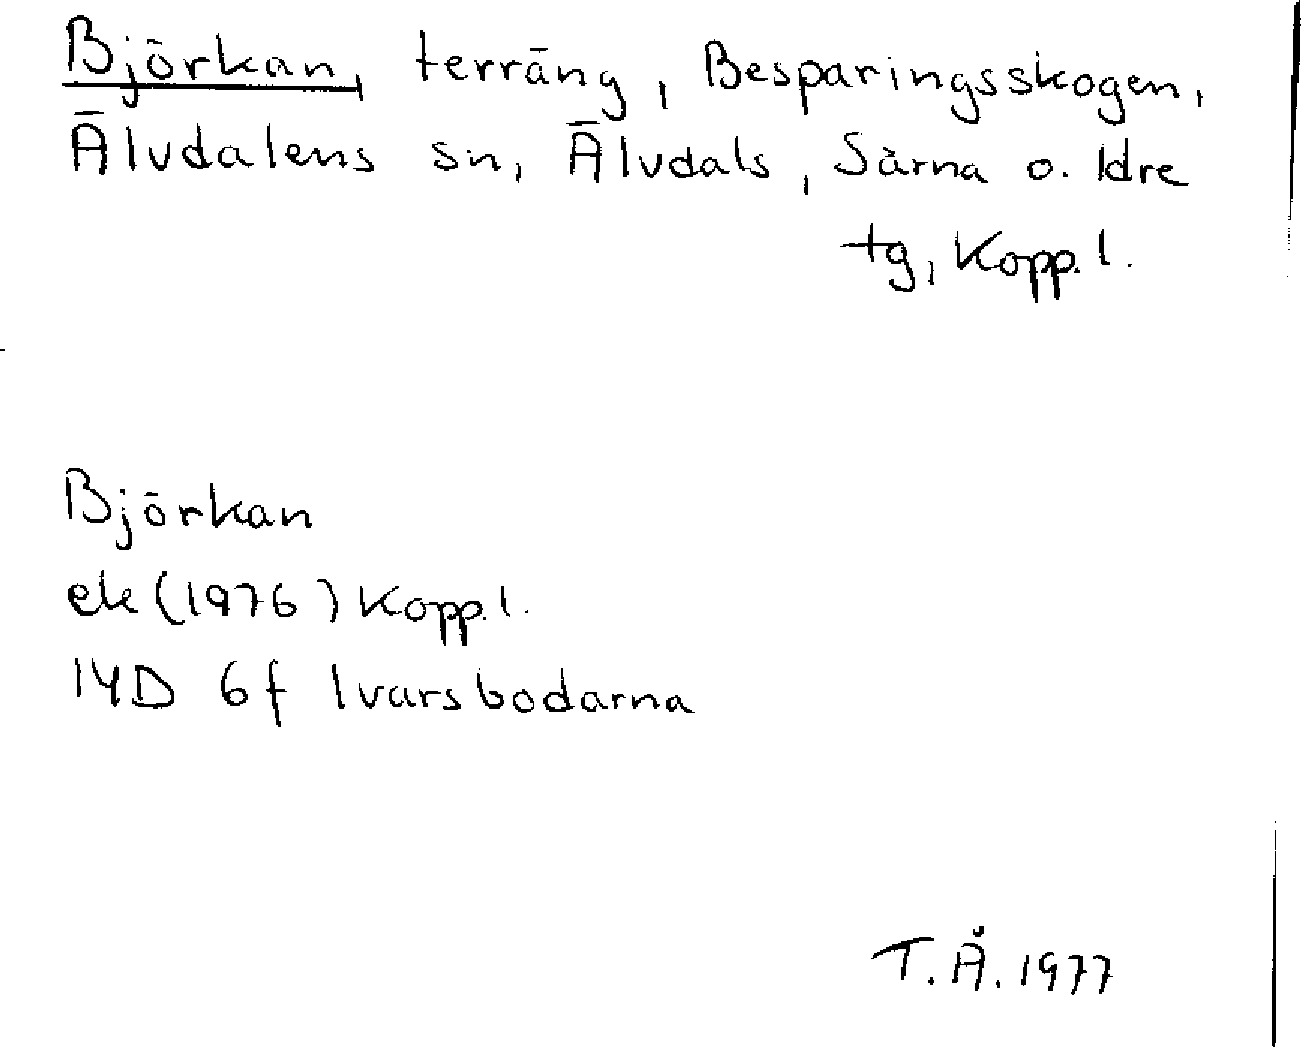 Björkan, terräng, Besparingsskogen,
Älvdalens sn, Älvdals, Särna o. Idre
tg, Kopp. l.
Björkan
ek (1976) Kopp. l.
14D 6f Ivarsbodarna
T. Å. 1977